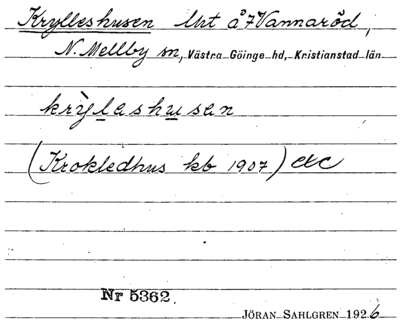 Krylleshusen lht å 7 Vannaröd,
N. Mellby sn, Västra Göinge hd, Kristianstad län
krỳlashusan
(Krokledhus kb 1907) etc
Nr 5362.
JÖRAN SAHLGREN 1926